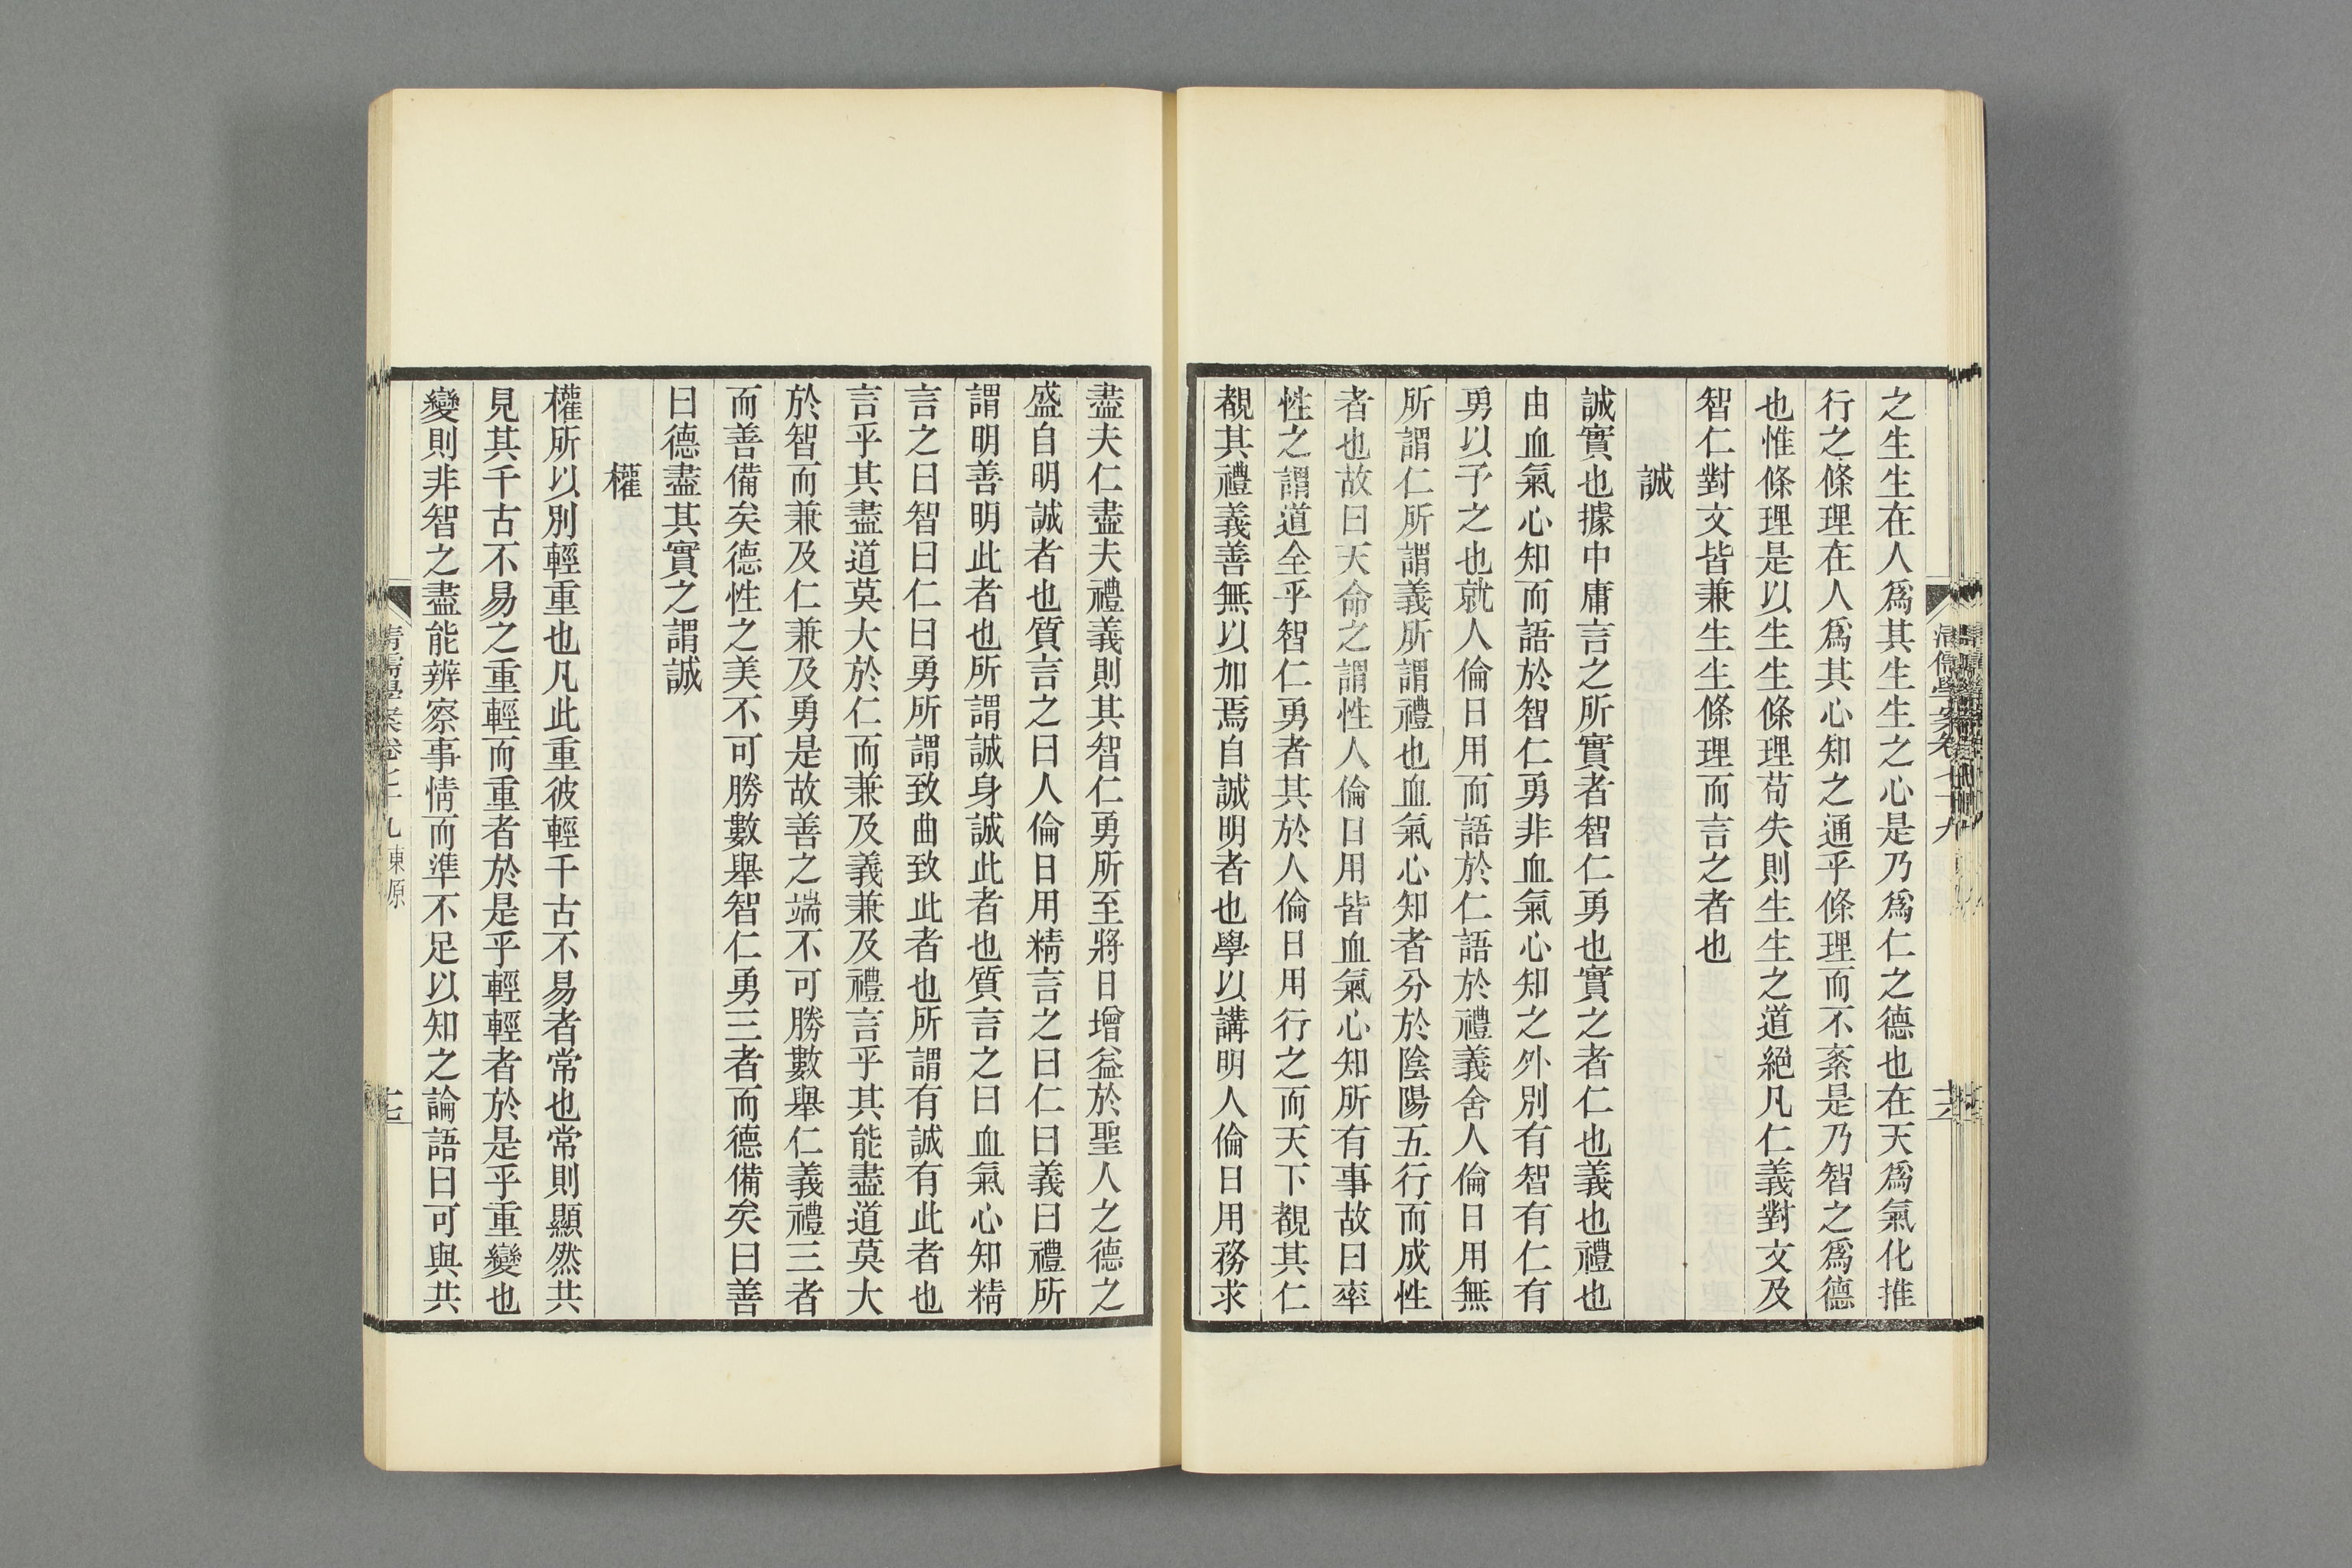 之生生在人爲其生生之心是乃爲仁之德也在天爲氣化推
行之條理在人爲其心知之通乎條理而不紊是乃智之爲德
也惟條理是以生生條理苟失則生生之道絕凡仁義對文及
智仁對文皆兼生生條理而言之者也
誠
誠實也據中庸言之所實者智仁勇也實之者仁也義也禮也
由血氣心知而語於智仁勇非血氣心知之外別有智有仁有
勇以予之也就人倫日用而語於仁語於禮義舍人倫日用無
所謂仁所謂義所謂禮也血氣心知者分於陰陽五行而成性
者也故曰天命之謂性人倫日用皆血氣心知所有事故曰率
性之謂道全乎智仁勇者其於人倫日用行之而天下覩其仁
覩其禮義善無以加焉自誠明者也學以講明人倫日用務求
盡夫仁盡夫禮義則其智仁勇所至將日增益於聖人之德之
盛自明誠者也質言之曰人倫日用精言之曰仁曰義曰禮所
謂明善明此者也所謂誠身誠此者也質言之曰血氣心知精
言之曰智曰仁曰勇所謂致曲致此者也所謂有誠有此者也
言乎其盡道莫大於仁而兼及義兼及禮言乎其能盡道莫大
於智而兼及仁兼及勇是故善之端不可勝數舉仁義禮三者
而善備矣德性之美不可勝數舉智仁勇三者而德備矣曰善
曰德盡其實之謂誠
權
權所以別輕重也凡此重彼輕千古不易者常也常則顯然共
見其千古不易之重輕而重者於是乎輕輕者於是乎重變也
變則非智之盡能辨察事情而準不足以知之論語曰可與共
清儒學案卷七十九 東原
十七